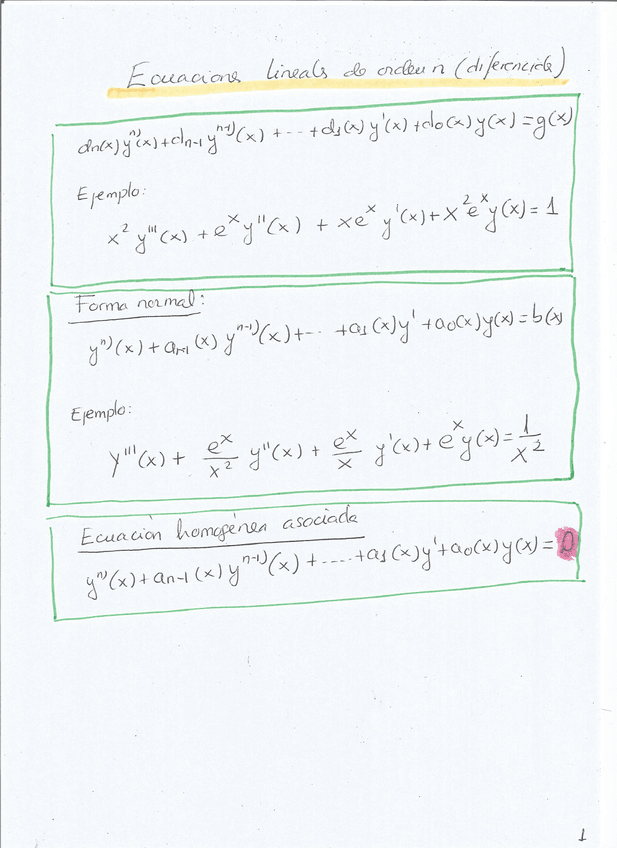 Ecuaciones lineals de orden n (diferenciale)
dn(x) yⁿ⁾(x) + dn-1 yⁿ⁻¹⁾(x) + ... + d1(x) y'(x) + d0(x) y(x) = g(x)
Ejemplo:
x² y'''(x) + eˣ y''(x) + xeˣ y'(x) + x²eˣ y(x) = 1
Forma normal:
yⁿ⁾(x) + an-1 (x) yⁿ⁻¹⁾(x) + ... + a1(x) y' + a0(x) y(x) = b(x)
Ejemplo:
y'''(x) + eˣ/x² y''(x) + eˣ/x y'(x) + eˣ y(x) = 1/x²
Ecuación homogénea asociada
yⁿ⁾(x) + an-1 (x) yⁿ⁻¹⁾(x) + ..... + a1(x) y' + a0(x) y(x) = 0
1